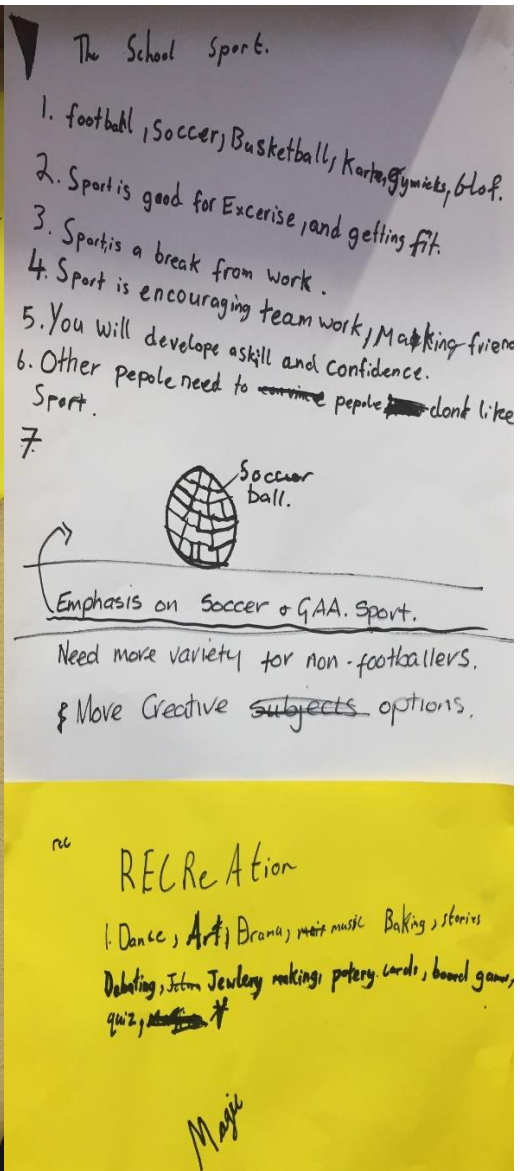 The School Sport.
1. football, Soccer, Basketball, Karte, gymicks, Glof.
2. Sport is good for Excerise, and getting fit.
3. Sport is a break from work.
4. Sport is encouraging team work, Making friend
5. You will develope a skill and confidence.
6. Other pepole need to convince pepole dont like
Sport.
7
Soccer
ball.
Emphasis on Soccer & GAA. Sport.
Need more variety for non-footballers.
& More Creative subjects options.
rec
RECReAtion
1. Dance, Art, Drama, music Baking, stories
Debating, Film Jewlery making, potery. cards, board games,
quiz,
Magic